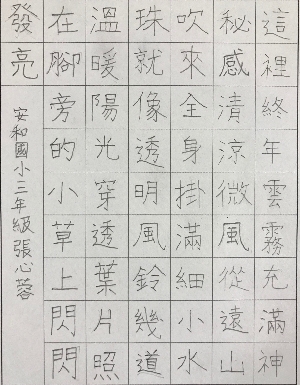 這裡終年雲霧充滿神
秘感清涼微風從遠山
吹來全身掛滿細小水
珠就像透明風鈴幾道
溫暖陽光穿透葉片照
在腳旁的小草上閃閃
發亮
安和國小三年級張心蓉